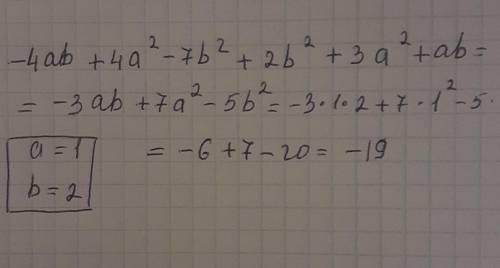 -4ab + 4a² - 7b² + 2b² + 3a² + ab =
= -3ab + 7a² - 5b² = -3·1·2 + 7·1² - 5·
a = 1
= -6 + 7 - 20 = -19
b = 2